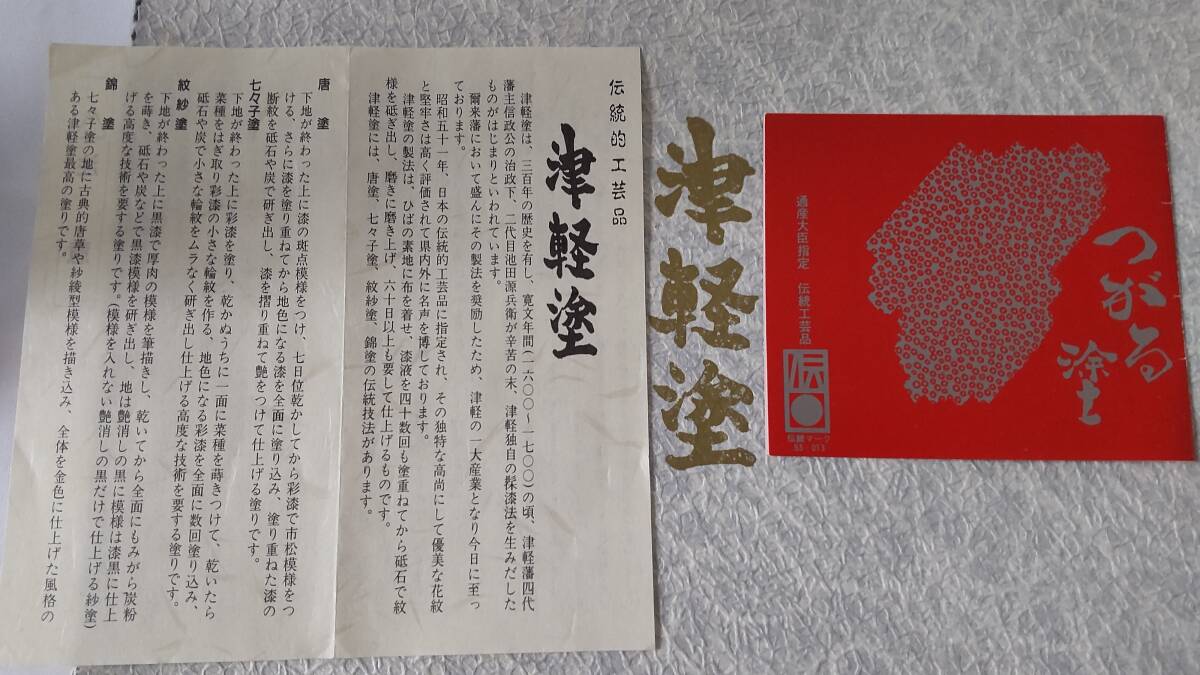 つがる
塗
通産大臣指定　伝統工芸品
伝
伝統マーク
津軽塗
伝統的工芸品
津軽塗
津軽塗は、三百年の歴史を有し、寛文年間(一六〇〇～一七〇〇)の頃、津軽藩四代
藩主信政公の治政下、二代目池田源兵衛が辛苦の末、津軽独自の髹漆法を生みだした
ものがはじまりといわれています。
爾来藩において盛んにその製法を奨励したため、津軽の一大産業となり今日に至っ
ております。
昭和五十一年、日本の伝統的工芸品に指定され、その独特な高尚にして優美な花紋
と堅牢さは高く評価されて県内外に名声を博しております。
津軽塗の製法は、ひばの素地に布を着せ、漆液を四十数回も塗重ねてから砥石で紋
様を砥ぎ出し、磨きに磨き上げ、六十日以上も要して仕上げるものです。
津軽塗には、唐塗、七々子塗、紋紗塗、錦塗の伝統技法があります。
唐　塗
下地が終わった上に漆の斑点模様をつけ、七日位乾かしてから彩漆で市松模様をつ
ける、さらに漆を塗り重ねてから地色になる漆を全面に塗り込み、塗り重ねた漆の
断紋を砥石や炭で研ぎ出し、漆を摺り重ねて艶をつけて仕上げる塗りです。
七々子塗
下地が終わった上に彩漆を塗り、乾かぬうちに一面に菜種を蒔きつけて、乾いたら
菜種をはぎ取り彩漆の小さな輪紋を作る、地色になる彩漆を全面に数回塗り込み、
砥石や炭で小さな輪紋をムラなく研ぎ出し仕上げる高度な技術を要する塗りです。
紋紗塗
下地が終わった上に黒漆で厚肉の模様を筆描きし、乾いてから全面にもみがら炭粉
を蒔き、砥石や炭などで黒漆模様を研ぎ出し、地は艶消しの黒に模様は漆黒に仕上
げる高度な技術を要する塗りです。(模様を入れない艶消しの黒だけで仕上げる紗塗)
錦　塗
七々子塗の地に古典的唐草や紗綾型模様を描き込み、全体を金色に仕上げた風格の
ある津軽塗最高の塗りです。